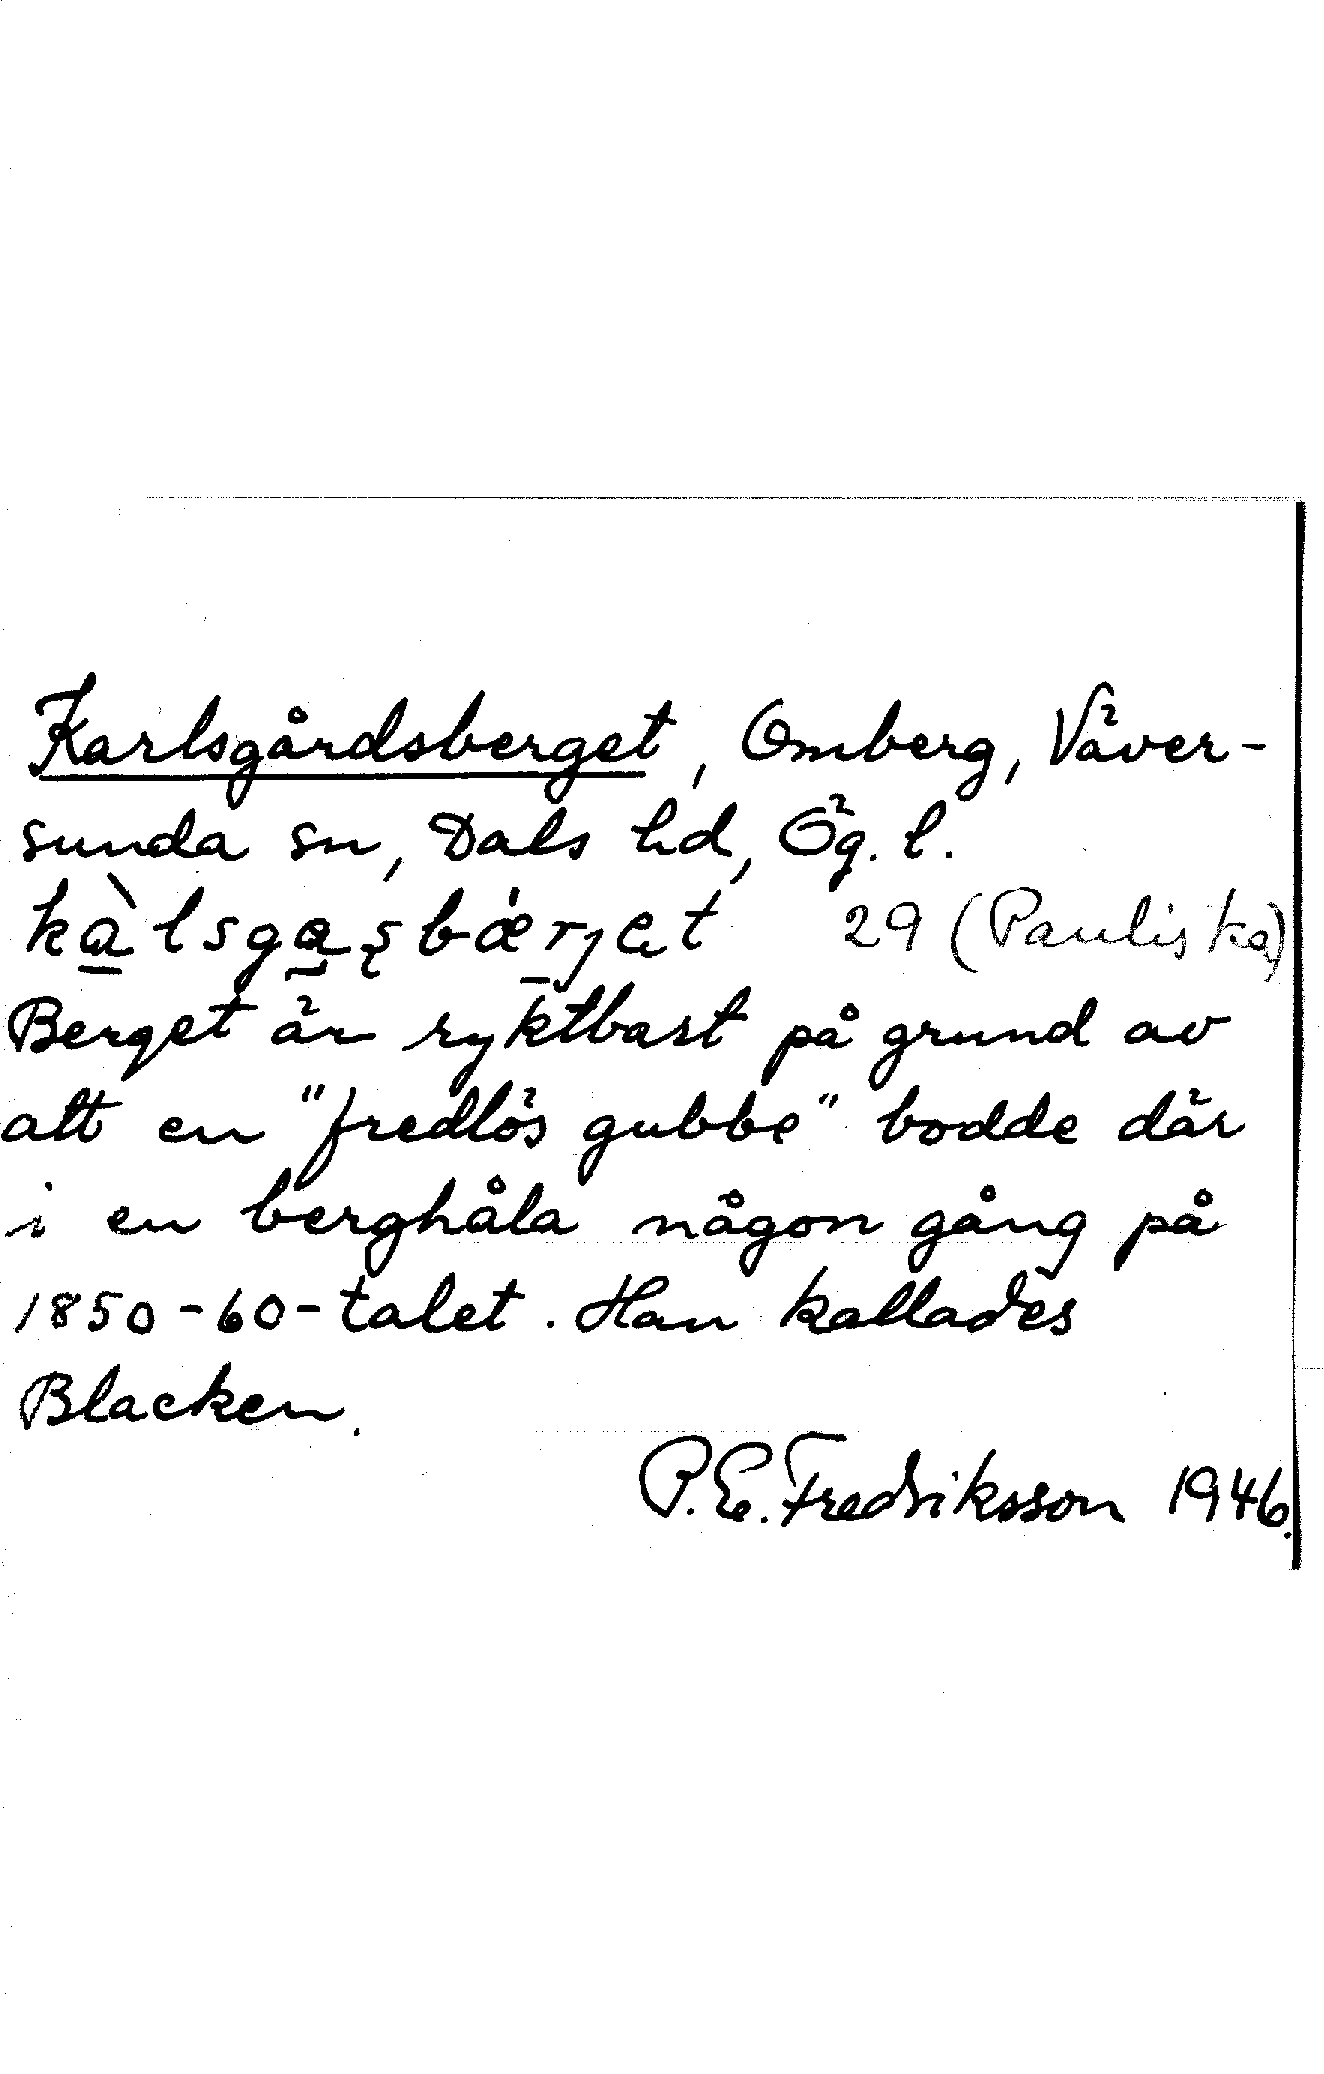 Karlsgårdsberget, Omberg, Väver-
sunda sn, Dals hd, Ög. l.
kàlsgaʂbærjet 29 (Pauliska)
Berget är ryktbart på grund av
att en "fredlös gubbe" bodde där
i en berghåla någon gång på
1850-60-talet. Han kallades
Blacken.
P.E. Fredriksson 1946.